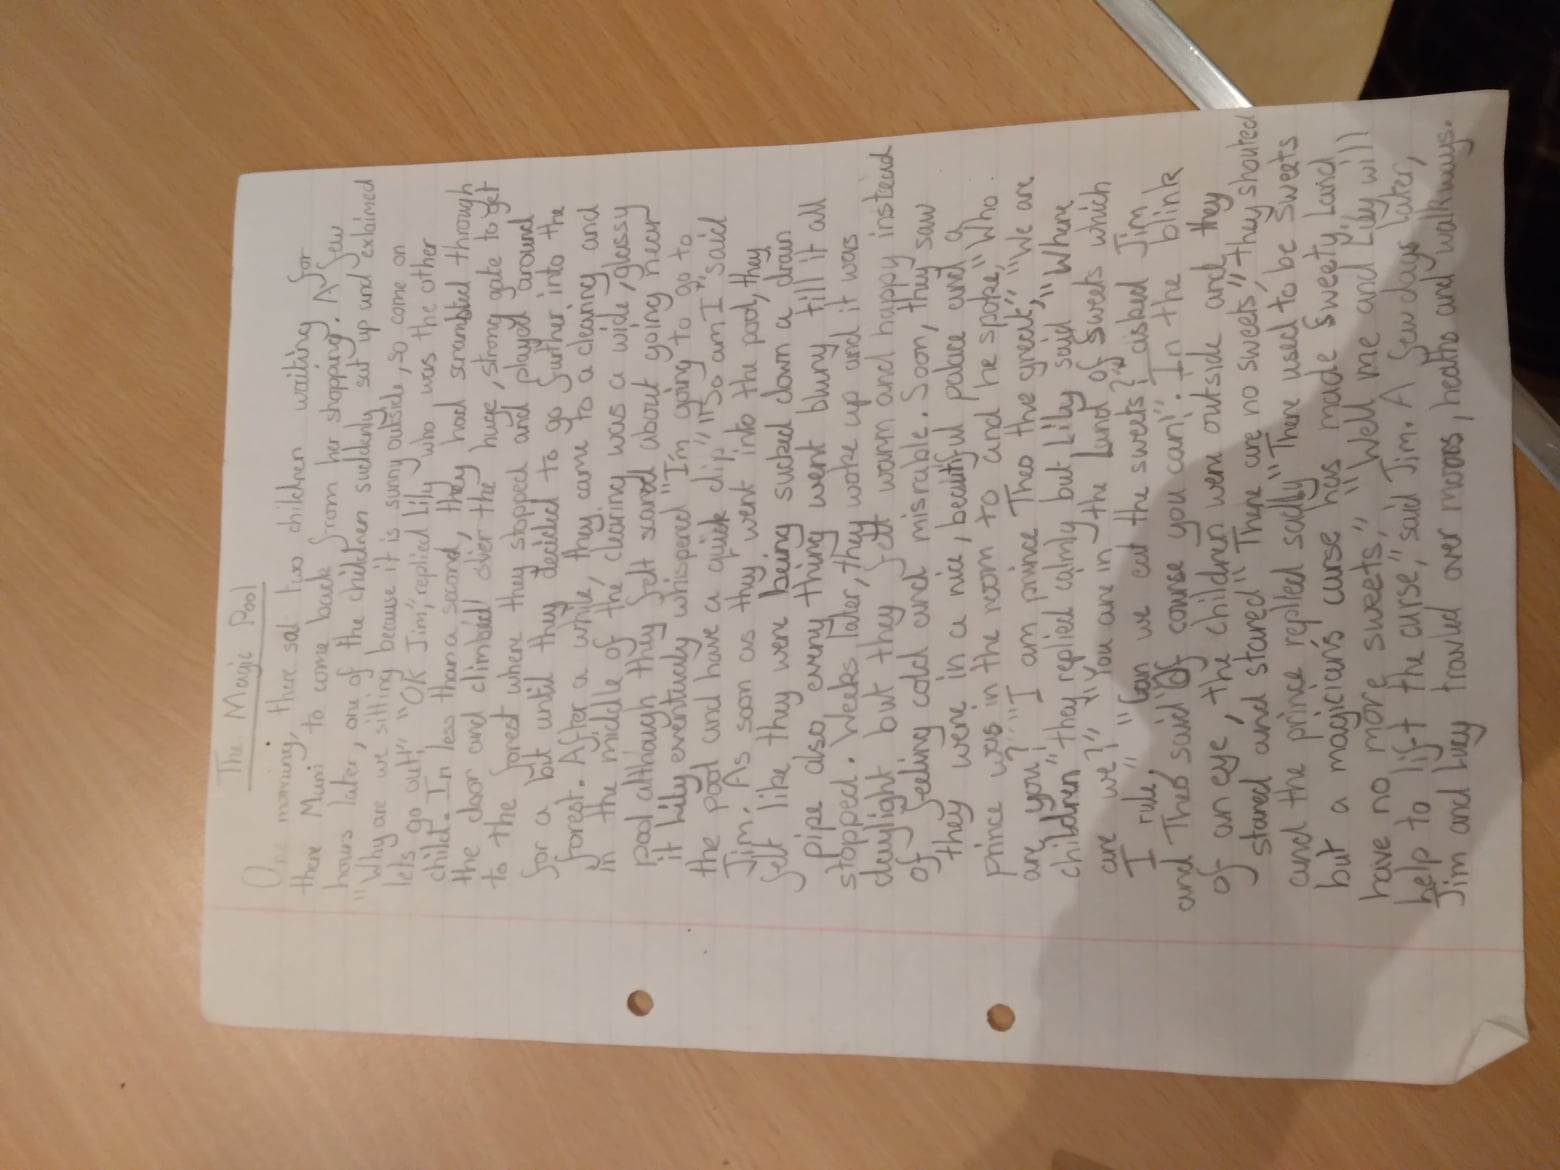 The Magic Pool
One morning, there sat two children waiting for
there Mum to come back from her shopping. A few
hours later, one of the children suddenly sat up and exlaimed
"Why are we sitting because it is sunny outside, so come on
lets go out!" "OK Jim", replied Lily who was the other
child. In less than a second, they had scrambled through
the door and climbed over the huge, strong gate to get
to the forest where they stopped and played around
for a bit until they decided to go further into the
forest. After a while, they came to a clearing and
in the middle of the clearing was a wide, glassy
pool although they felt scared about going near
it Lily eventualy whisperd "I'm going to go to
the pool and have a quick dip" "So am I" said
Jim. As soon as they went into the pool, they
felt like they were being sucked down a drain
pipe also every thing went blurry till it all
stopped. Weeks later, they woke up and it was
daylight but they felt warm and happy instead
of feeling cold and misrable. Soon, they saw
they were in a nice, beatiful palace and a
prince was in the room to and he spoke, "Who
are you?" "I am prince Theo the great," "We are
children" they replied calmly but Lily said "Where
are we?" "You are in the Land of Sweets which
I rule," "Can we eat the sweets?" asked Jim
and Theo said "Of course you can!". In the blink
of an eye, the children were outside and they
stared and stared "There are no sweets", they shouted
and the prince replied sadly "There used to be sweets
but a majician's curse has made Sweety Land
have no more sweets," "Well me and Lily will
help to lift the curse," said Jim. A few days later,
Jim and Lucy travled over moors, heaths and walkways.